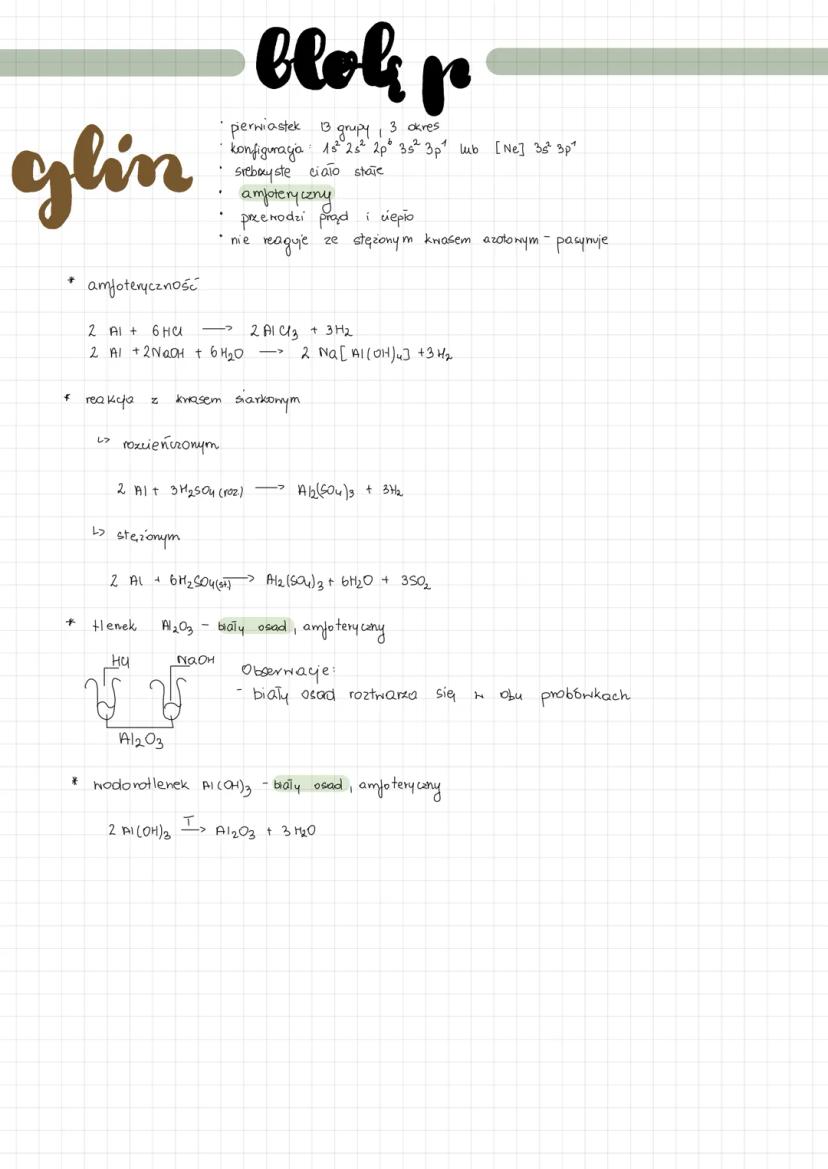 blok p
glin
· pierwiastek 13 grupy, 3 okres
· konfiguracja: 1s² 2s² 2p⁶ 3s² 3p¹ lub [Ne] 3s² 3p¹
· srebrzyste ciało stałe
· amfoteryczny
· przewodzi prąd i ciepło
· nie reaguje ze stężonym kwasem azotowym - pasywuje
* amfoteryczność
2 Al + 6HCl → 2AlCl₃ + 3H₂
2 Al + 2NaOH + 6H₂O → 2 Na[Al(OH)₄] + 3H₂
* reakcja z kwasem siarkowym
↳ rozcieńczonym
2 Al + 3H₂SO₄(roz) → Al₂(SO₄)₃ + 3H₂
↳ stężonym
2 Al + 6H₂SO₄(st) → Al₂(SO₄)₃ + 6H₂O + 3SO₂
* tlenek Al₂O₃ - biały osad, amfoteryczny
HCl NaOH
Obserwacje:
- biały osad roztwarza się w obu probówkach
Al₂O₃
* wodorotlenek Al(OH)₃ - biały osad, amfoteryczny
2 Al(OH)₃ T→ Al₂O₃ + 3H₂O